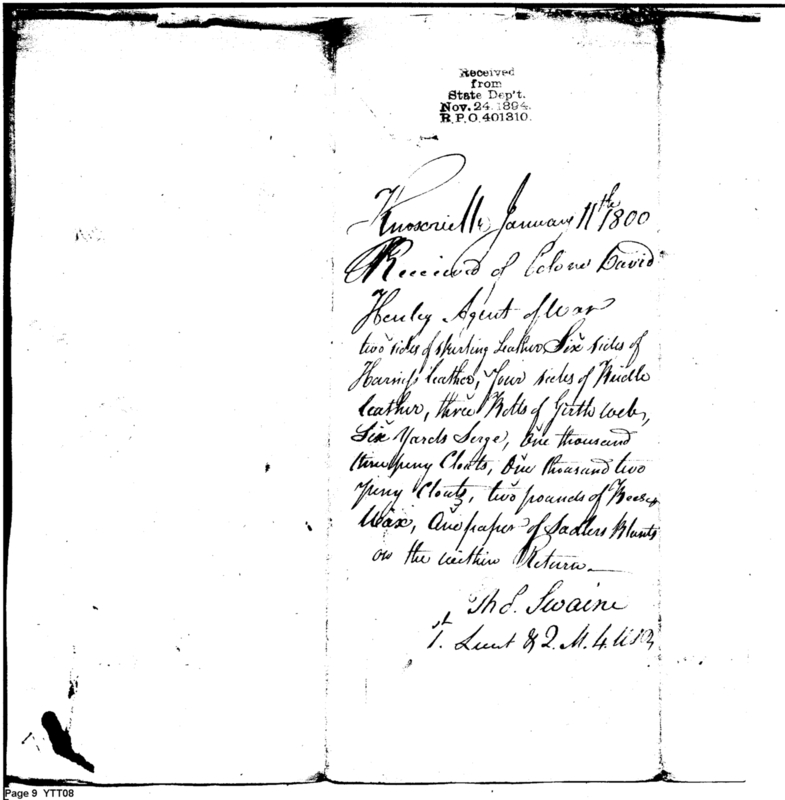 Received
from
State Dep't.
Nov. 24. 1894.
R.P.O. 401310.
Knoxville January 11th 1800
Received of Colone David
Henley Agent of War
two sides of skirting Leather Six sides of
Harness leather, four sides of Bridle
leather, three Bolts of Girth web,
Six Yards Serge, One thousand
three peny Clouts, One thousand two
peny Clouts, two pounds of Bees
Wax, One paper of Sadlers Blunts
on the within Return.
Th S. Swaine
1st. Lieut & Q. M. 4
Page 9 YTT08